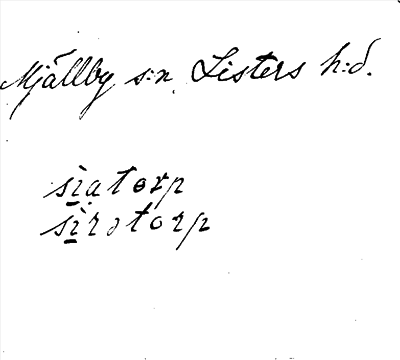 Mjällby s:n Listers h:d.
sì̠ạtorp
sì̠rətorp